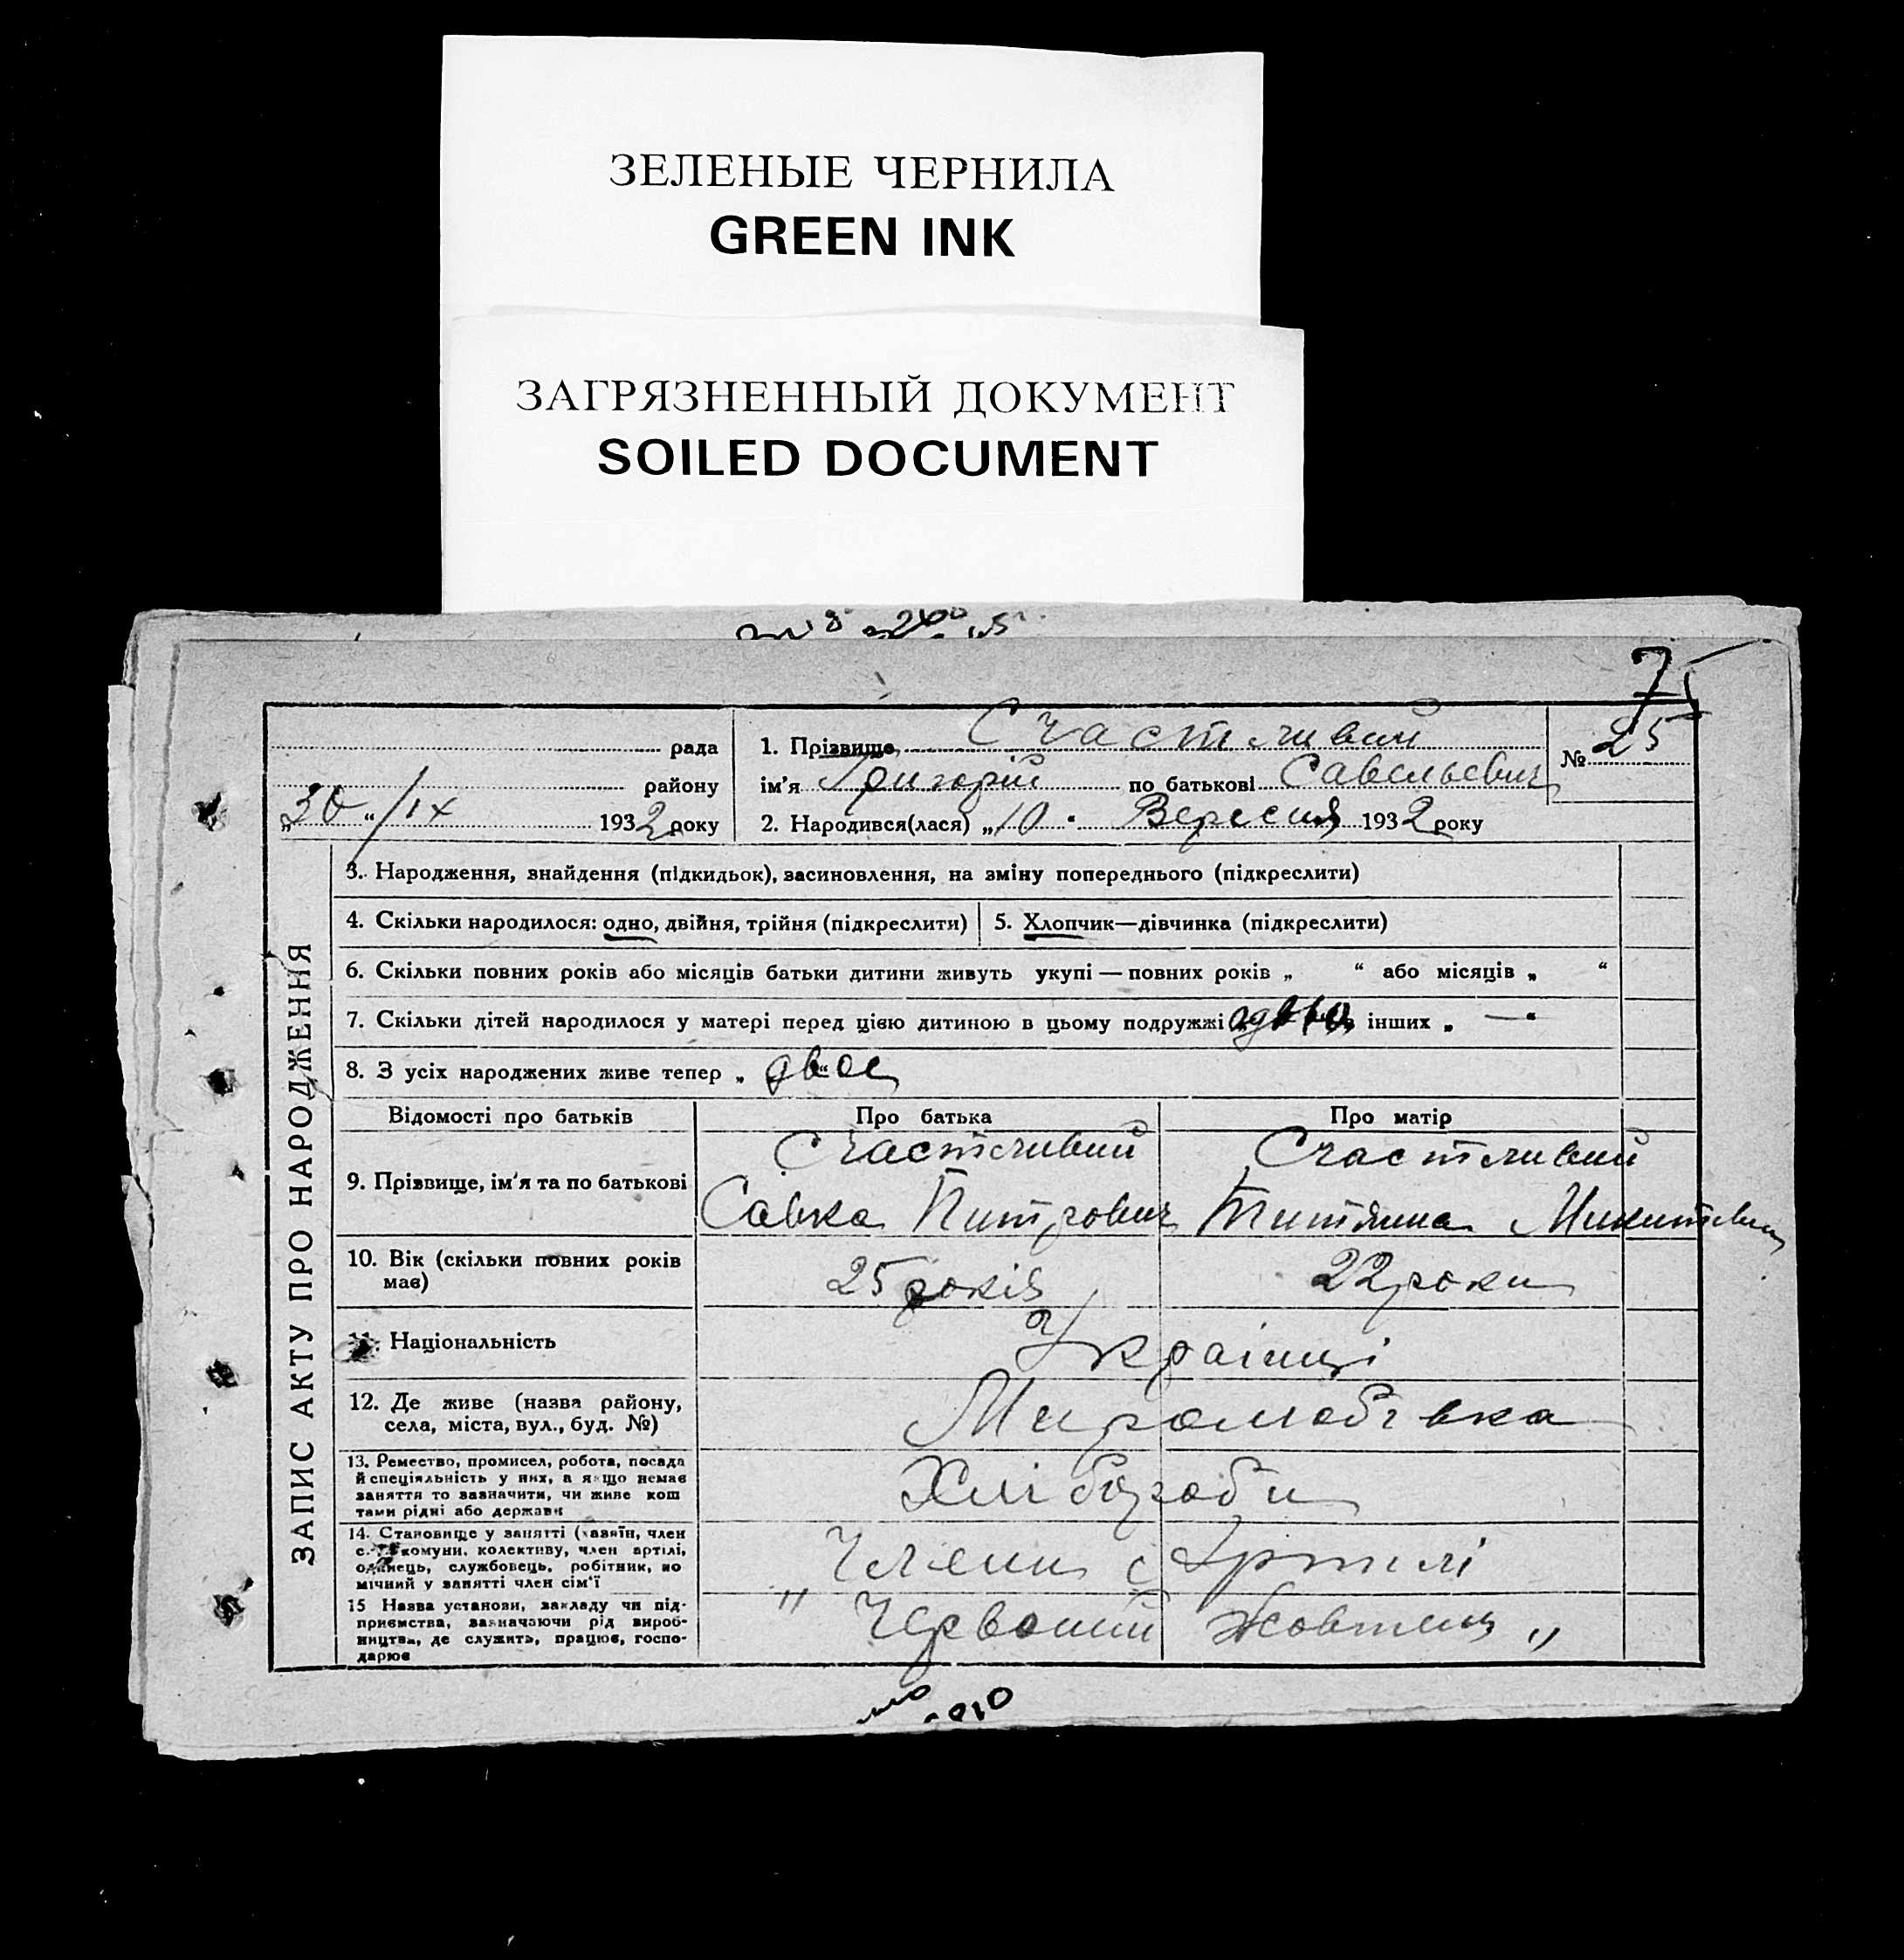 ЗЕЛЕНЫЕ ЧЕРНИЛА
GREEN INK
ЗАГРЯЗНЕННЫЙ ДОКУМЕНТ
SOILED DOCUMENT
75
ЗАПИС АКТУ ПРО НАРОДЖЕННЯ
рада
району
„30“/IX 1932 року
1. Прізвище Счастливий
ім'я Григорій по батькові Савельевич
2. Народився(лася) „10" Вересня 1932 року
№ 25
3. Народження, знайдення (підкидьок), засиновлення, на зміну попереднього (підкреслити)
4. Скільки народилося: одно, двійня, трійня (підкреслити)
5. Хлопчик—дівчинка (підкреслити)
6. Скільки повних років або місяців батьки дитини живуть укупі — повних років „ “ або місяців „ “
7. Скільки дітей народилося у матері перед цією дитиною в цьому подружжі інших „ — “
8. З усіх народжених живе тепер „ двое
Відомості про батьків
Про батька
Про матір
9. Прізвище, ім'я та по батькові
Счастливий
Савка Питрович
Счастливий
Титяна Микитевич
10. Вік (скільки повних років
має)
25 років
22 роки
11. Національність
Українці
12. Де живе (назва району,
села, міста, вул., буд. №)
13. Ремество, промисел, робота, посада
й спеціяльність у них, а якщо немає
заняття то зазначити, чи живе кош
тами рідні або держави
Хлібороби
14. Становище у занятті (хазяїн, член
с.-г. комуни, колективу, член артілі,
одинець, службовець, робітник, по
мічний у занятті член сім'ї
Члени с Артилі
15 Назва установи, закладу чи під-
приємства, зазначаючи рід вироб-
ництва, де служить, працює, госпо-
дарює
„ Червоний Жовтень „